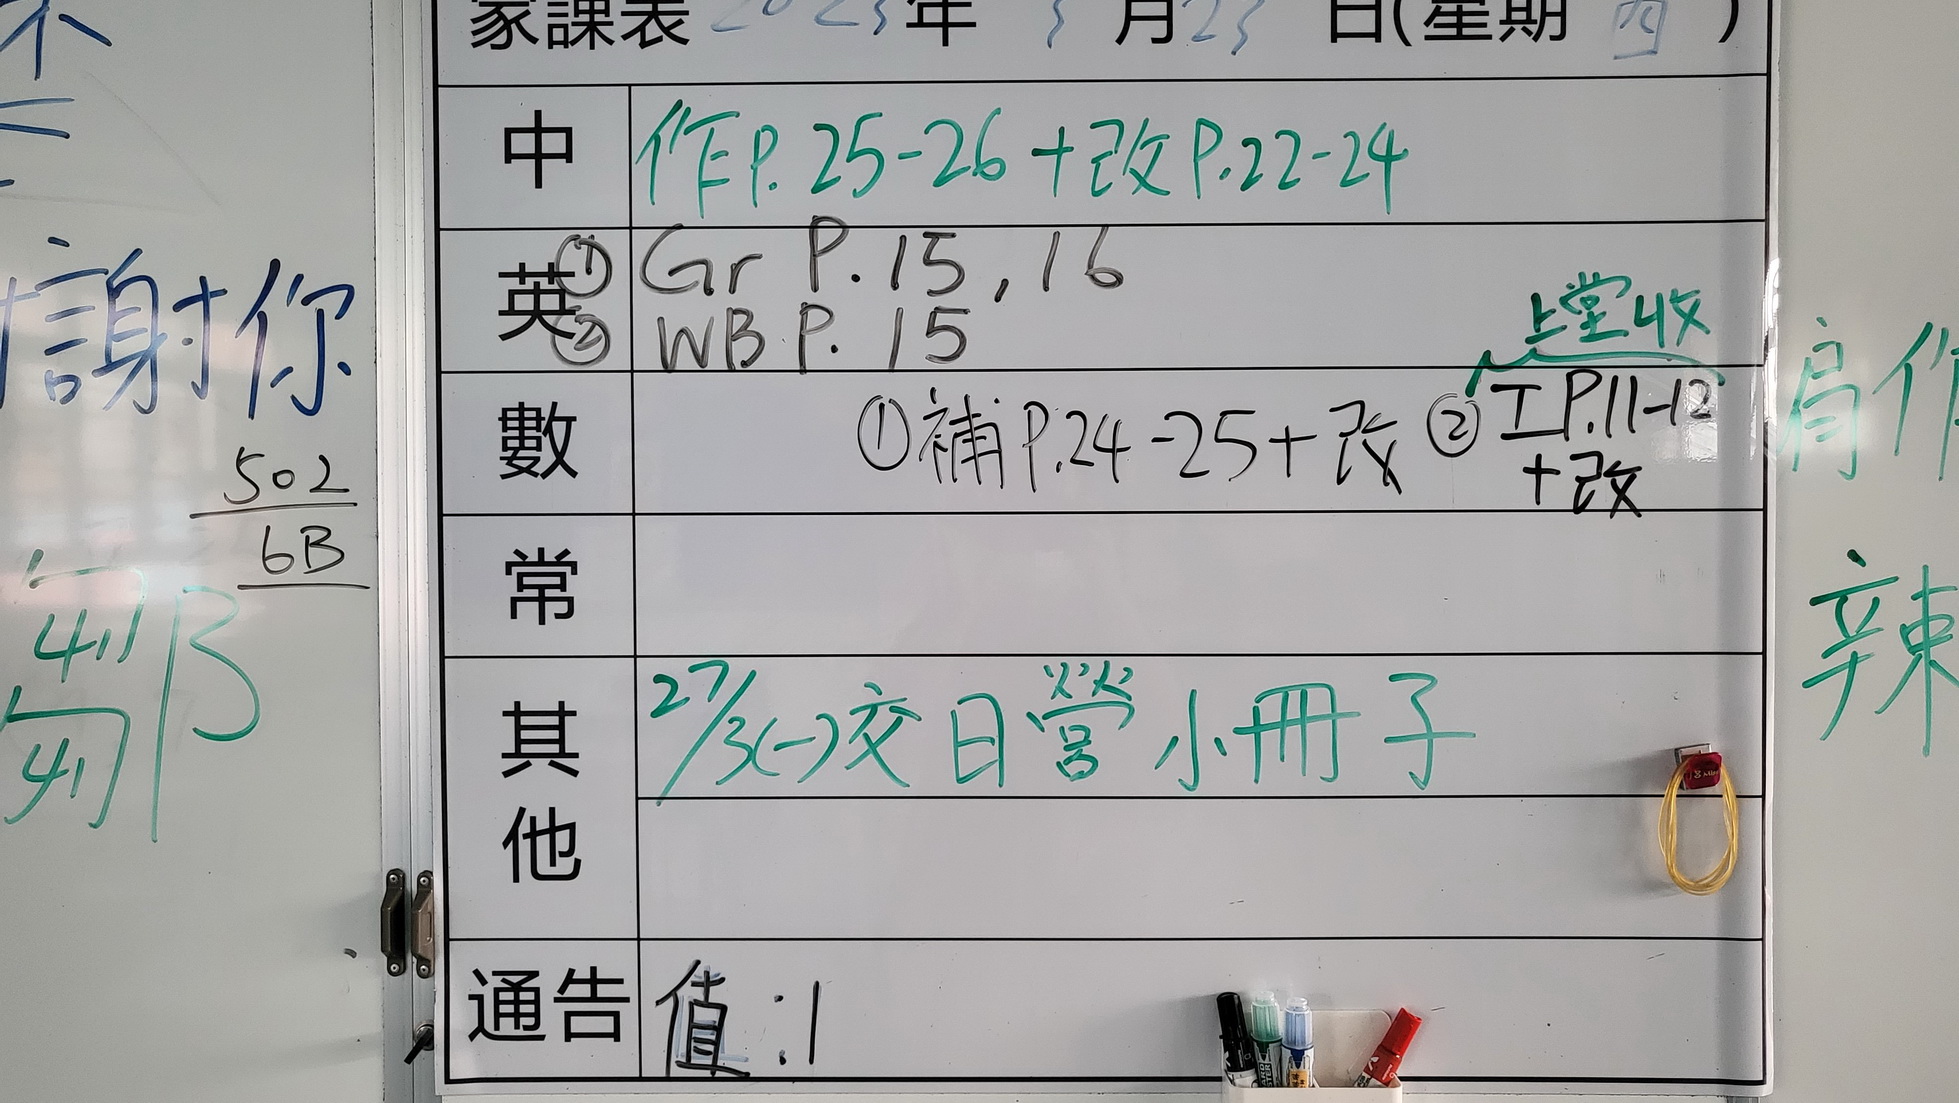 家課表 2023年 3月23日(星期四)
中 作P.25-26+改P.22-24
英 ① Gr P.15,16
② WB P.15
上堂收
數 ①補P.24-25+改 ②工P.11-12
+改
常
其他 27/3(一)交日營小冊子
通告 值:1
謝你
502
6B
鄒
作
辣